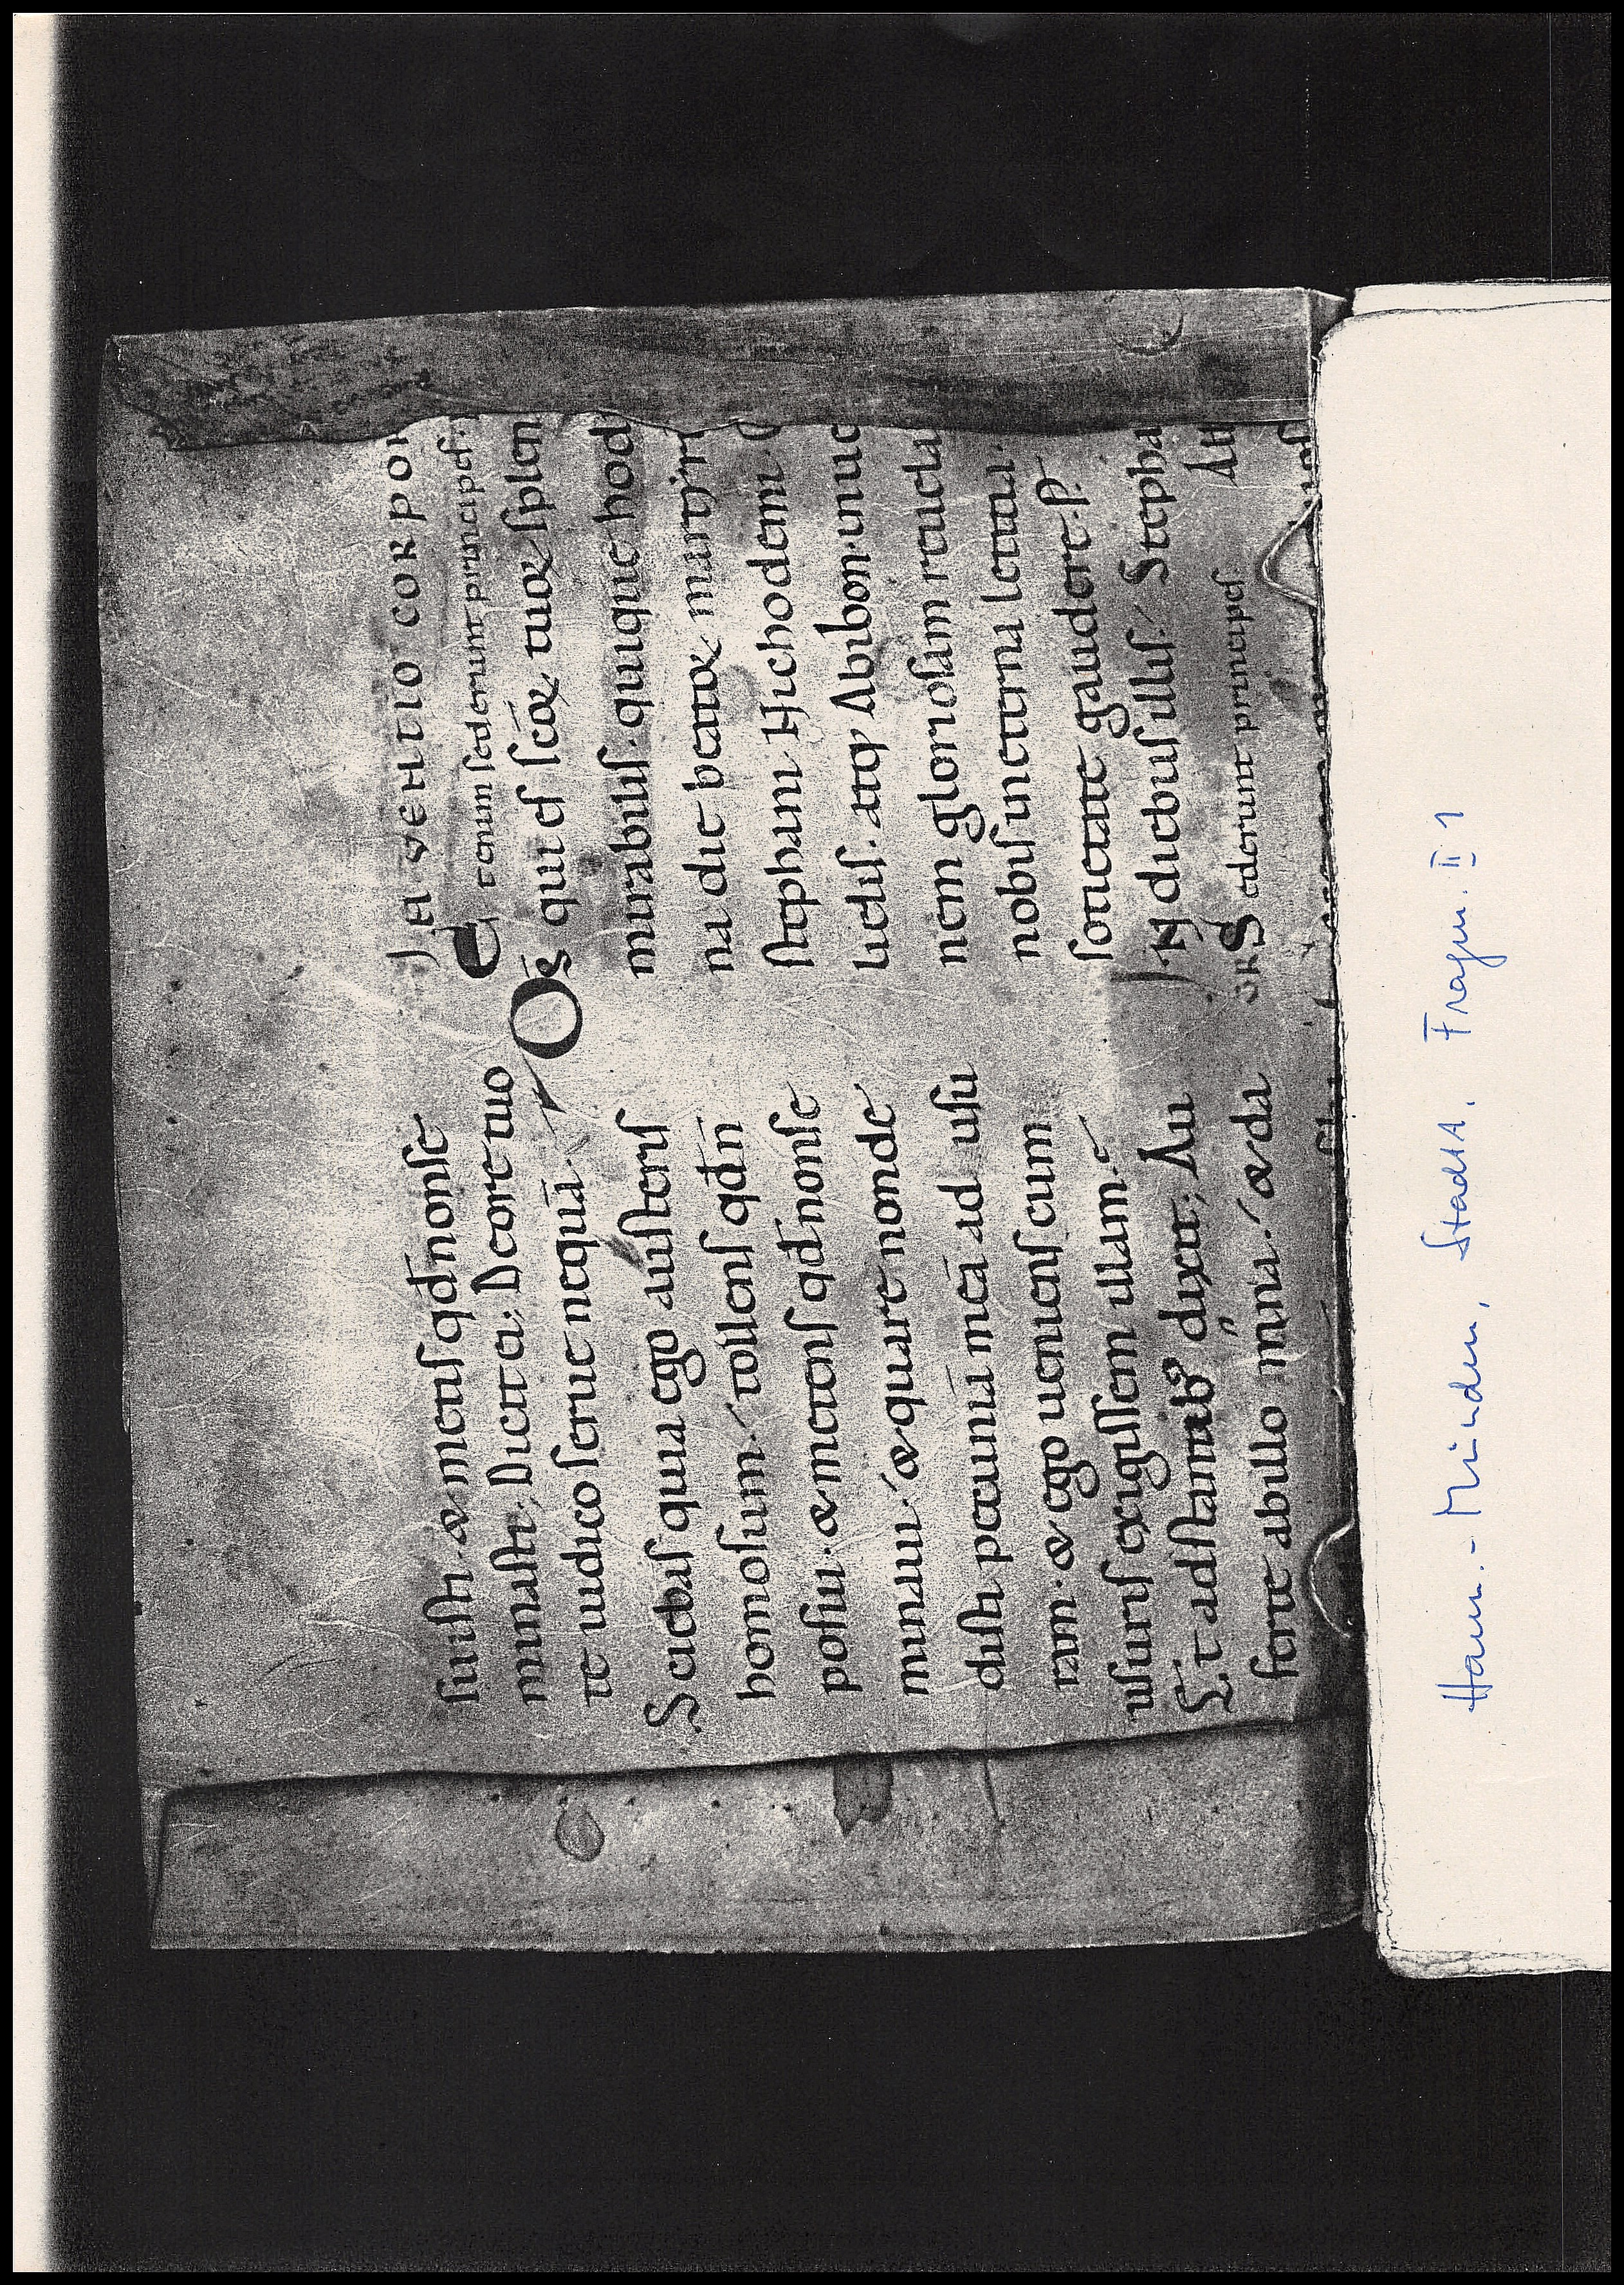 suisti· & metis qđ nonse
minasti; Dicit ei; De ore tuo
te iudico serue nequā·
Sciebas quia ego austeris
homo sum·/ tollens qđ ñ
posui· & metens qđ nonse
minaui·/ & quare nonde
disti pecuniā meā ad usu
ram· & ego ueniens cum
usuris exigissem illam·
Et adstantib; dixit; Au
ferte ab illo mna·/ & da
IN UENTIO CORPOR
Et enim sederunt principes·
DS qui es scōꝝ tuoꝝ splen
mirabilis· quique hod
na die beatoꝝ martyrū
stephani Nichodemi
lielis· atq; Abibon· inue
nem gloriosam reuela
nobis in aeterna letitia·
societate gaudere· P·
IN diebus illis·/ Stepha
GR Sederunt principes Au
Ham.-Minden, StadtA, Fragm. II 1